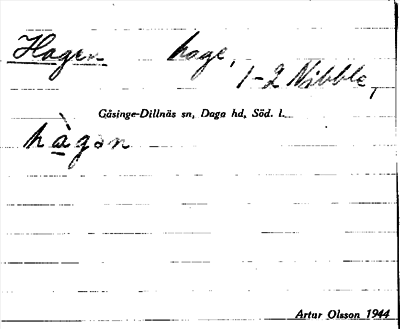 Hagen hage,
1-2 Nibble,
Gåsinge-Dillnäs sn, Daga hd, Söd. l.
hàgan
Artur Olsson 1944